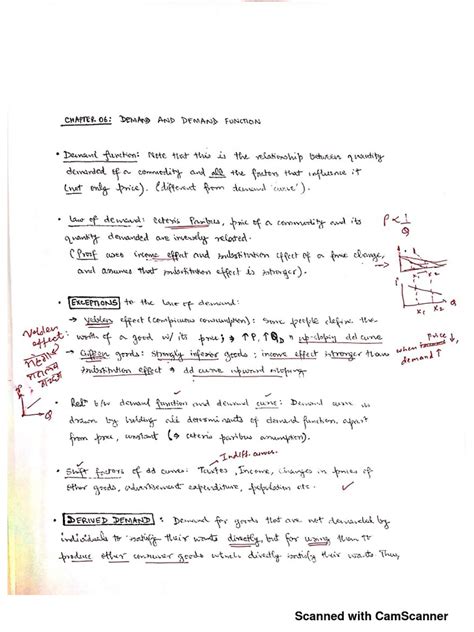 CHAPTER 06: DEMAND AND DEMAND FUNCTION
• Demand function: Note that this is the relationship between quantity
demanded of a commodity and all the factors that influence it
(not only price). (different from demand 'curve').
• Law of demand: ceteris Paribus, price of a commodity and its
quantity demanded are inversely related.
(Prof uses income effect and substitution effect of a price change,
and assumes that substitution effect is stronger).
P ∝ 1/Q
x1 x2
x1 x2
• EXCEPTIONS to the law of demand:
→ Veblen effect (conspicuous consumption): Some people define the
worth of a good w/ its price; → ↑P, ↑QD ⇒ up-sloping dd curve
→ Giffen goods: strongly inferior goods; income effect stronger than
substitution effect → dd curve upward sloping.
Veblen
effect:
P
Q
when price ↓,
demand ↑
• Reln b/w demand function and demand curve: Demand curve is
drawn by holding all determinants of demand function, apart
from price, constant (→ ceteris paribus assumption).
Indiff. curves.
• Shift factors of dd curve: Tastes, Income, changes in prices of
other goods, advertisement expenditure, population etc.
• DERIVED DEMAND: Demand for goods that are not demanded by
individuals to satisfy their wants directly, but for using them to
produce other consumer goods which directly satisfy their wants. Thus,
Scanned with CamScanner